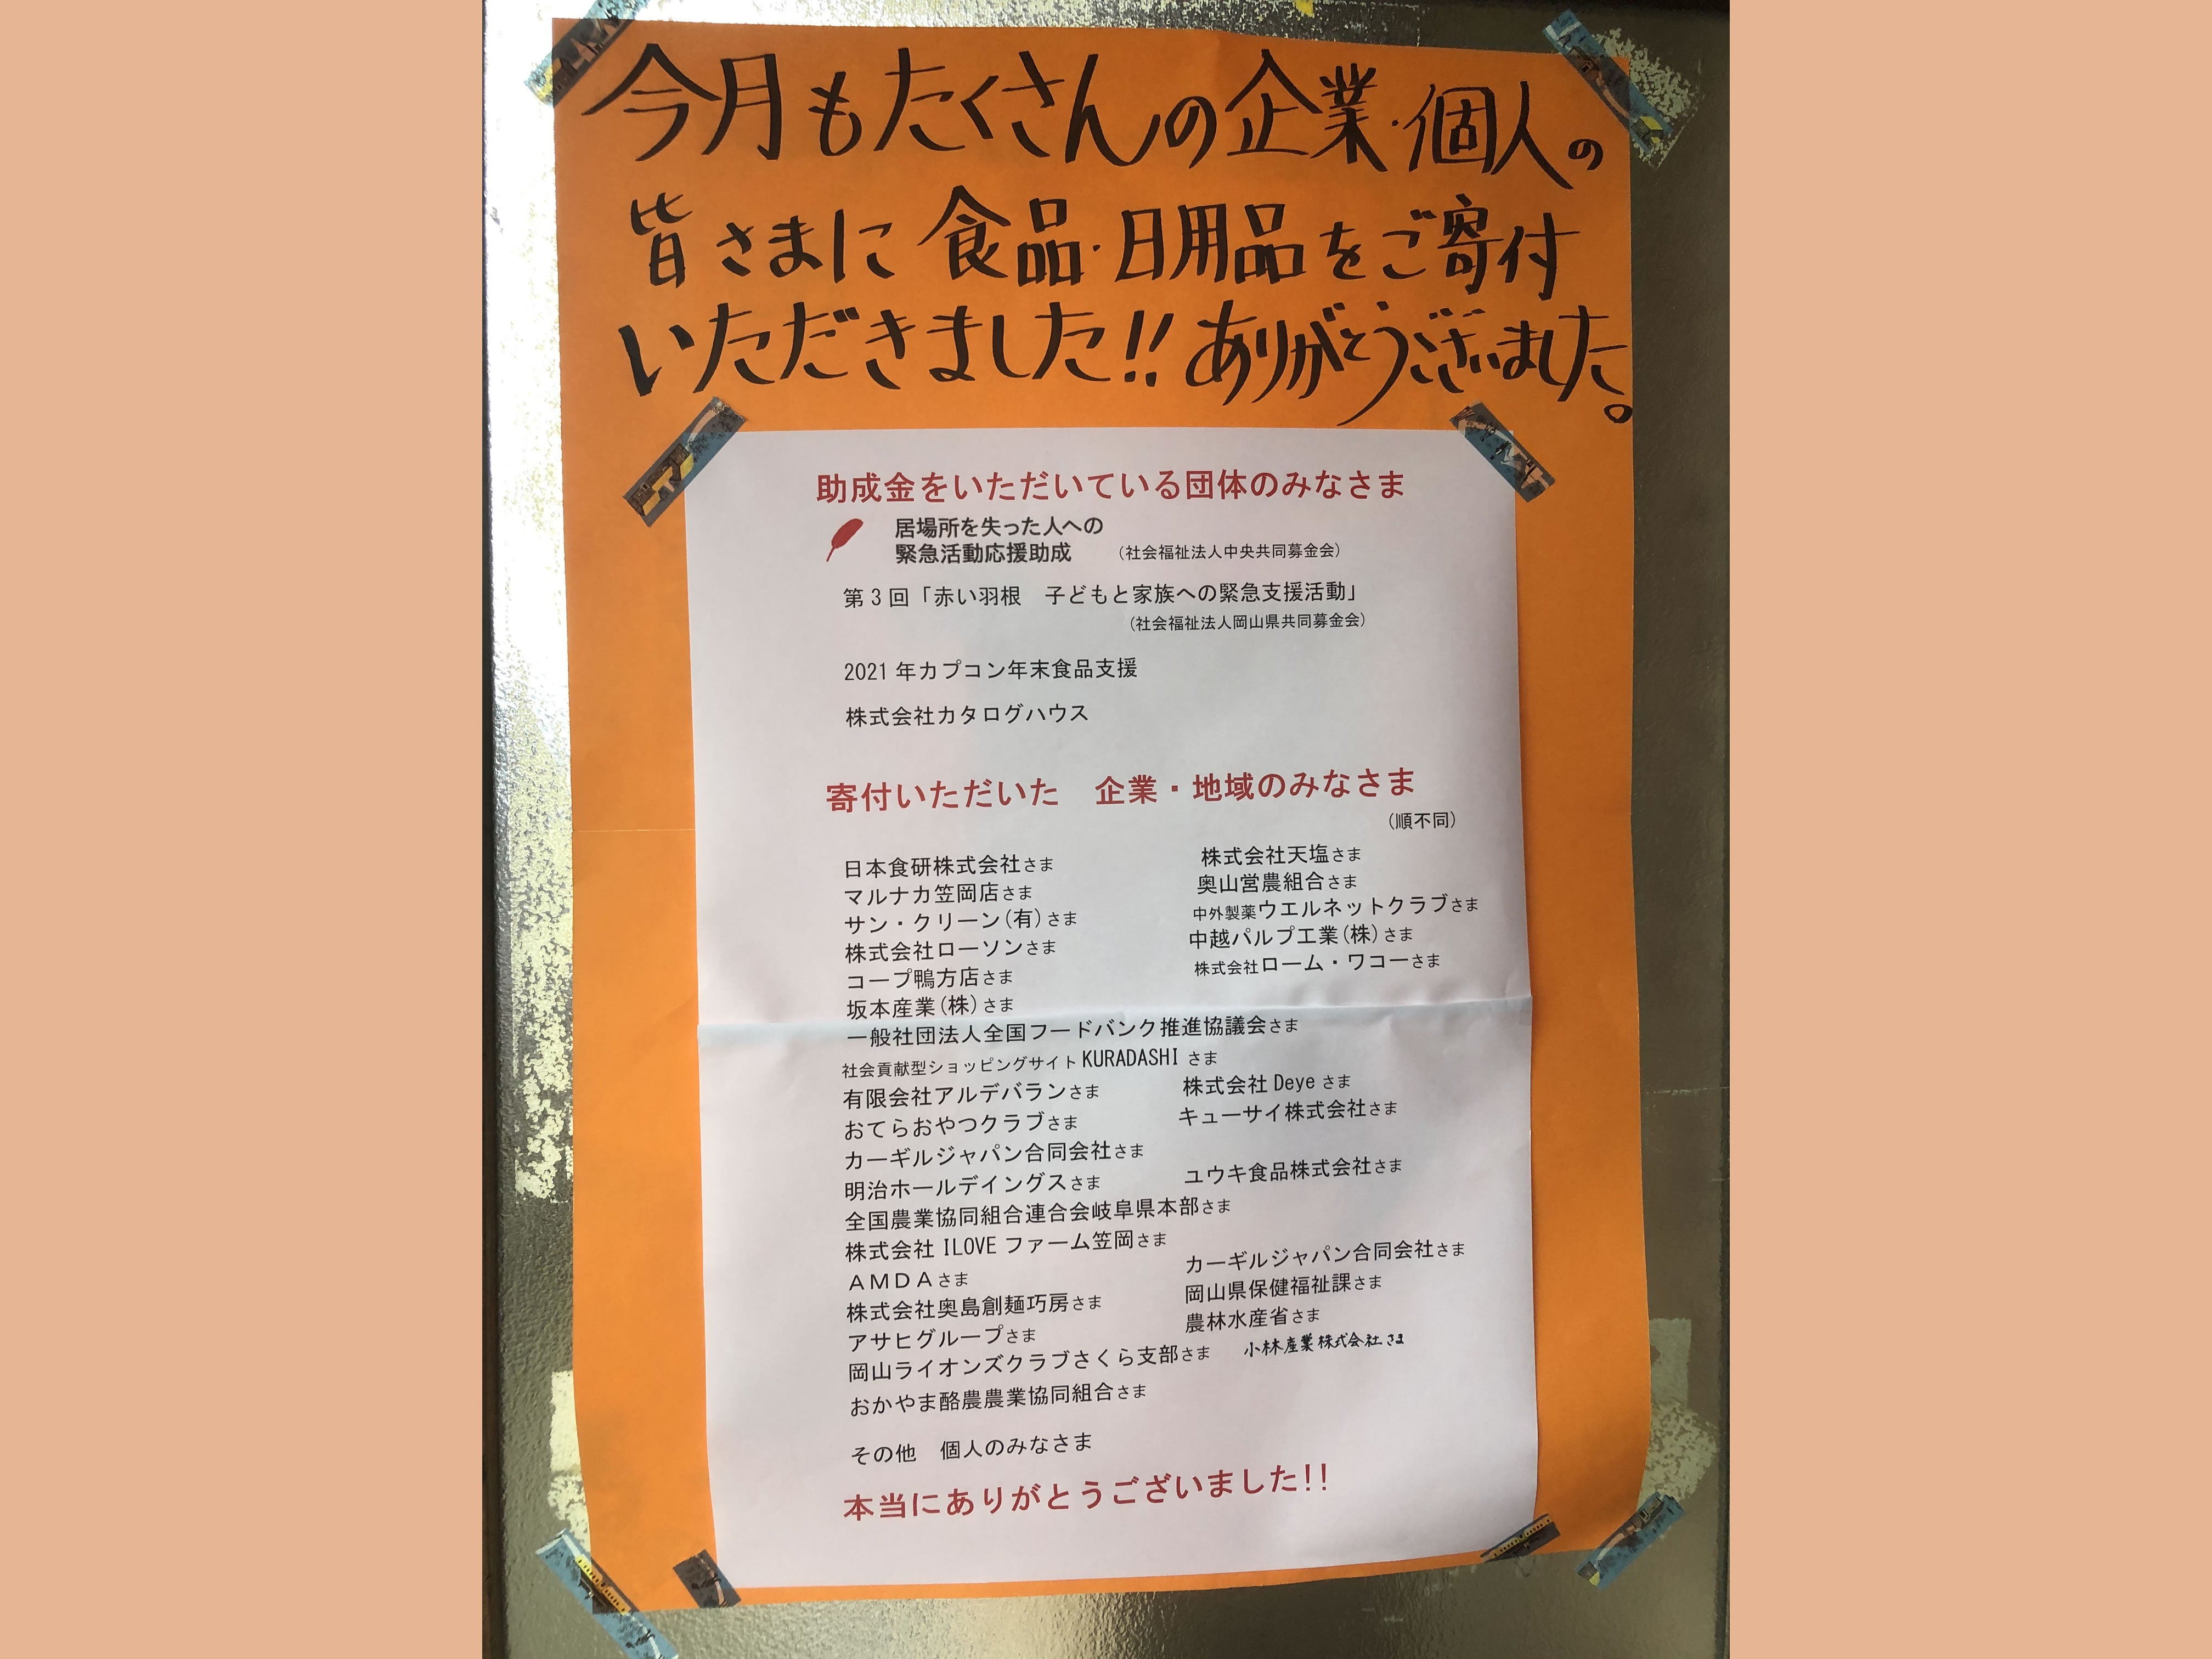 今月もたくさんの企業・個人の
皆さまに食品・日用品をご寄付
いただきました!! ありがとうございました。
助成金をいただいている団体のみなさま
居場所を失った人への
緊急活動応援助成 (社会福祉法人中央共同募金会)
第3回「赤い羽根 子どもと家族への緊急支援活動」
(社会福祉法人岡山県共同募金会)
2021年カプコン年末食品支援
株式会社カタログハウス
寄付いただいた 企業・地域のみなさま
(順不同)
日本食研株式会社さま 株式会社天塩さま
マルナカ笠岡店さま 奥山営農組合さま
サン・クリーン(有)さま 中外製薬ウエルネットクラブさま
株式会社ローソンさま 中越パルプ工業(株)さま
コープ鴨方店さま 株式会社ローム・ワコーさま
坂本産業(株)さま
一般社団法人全国フードバンク推進協議会さま
社会貢献型ショッピングサイトKURADASHI さま
有限会社アルデバランさま 株式会社Deyeさま
おてらおやつクラブさま キューサイ株式会社さま
カーギルジャパン合同会社さま
明治ホールデイングスさま ユウキ食品株式会社さま
全国農業協同組合連合会岐阜県本部さま
株式会社 ILOVE ファーム笠岡さま
AMDAさま カーギルジャパン合同会社さま
株式会社奥島創麺巧房さま 岡山県保健福祉課さま
アサヒグループさま 農林水産省さま
岡山ライオンズクラブさくら支部さま 小林産業株式会社さま
おかやま酪農農業協同組合さま
その他 個人のみなさま
本当にありがとうございました!!